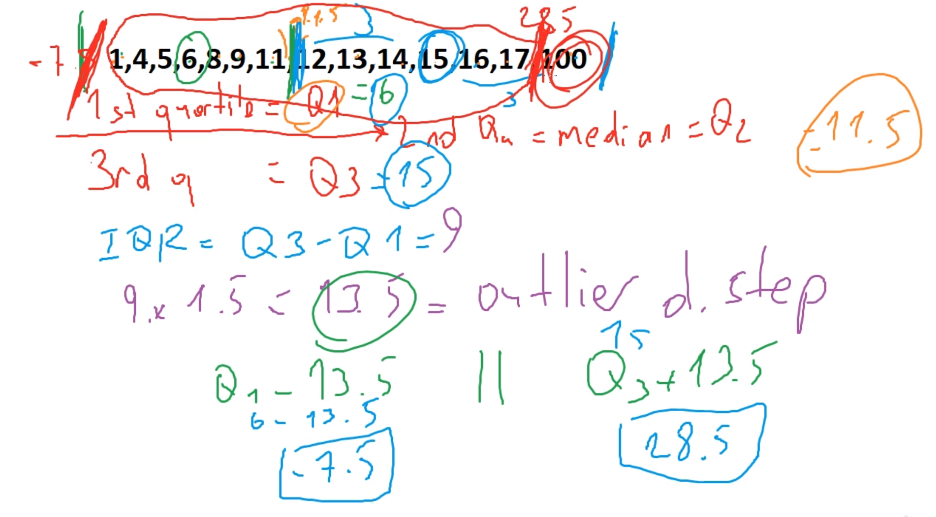 -11.5 3 28.5
-7 1,4,5,6,8,9,11,12,13,14,15,16,17,100
1st quartile = Q1 = 6 3
2nd Qu = median = Q2 = 11.5
3rd q = Q3 = 15
IQR = Q3 - Q1 = 9
9 x 1.5 = 13.5 = outlier d. step
15
Q1 - 13.5 || Q3 + 13.5
6 - 13.5
-7.5 28.5